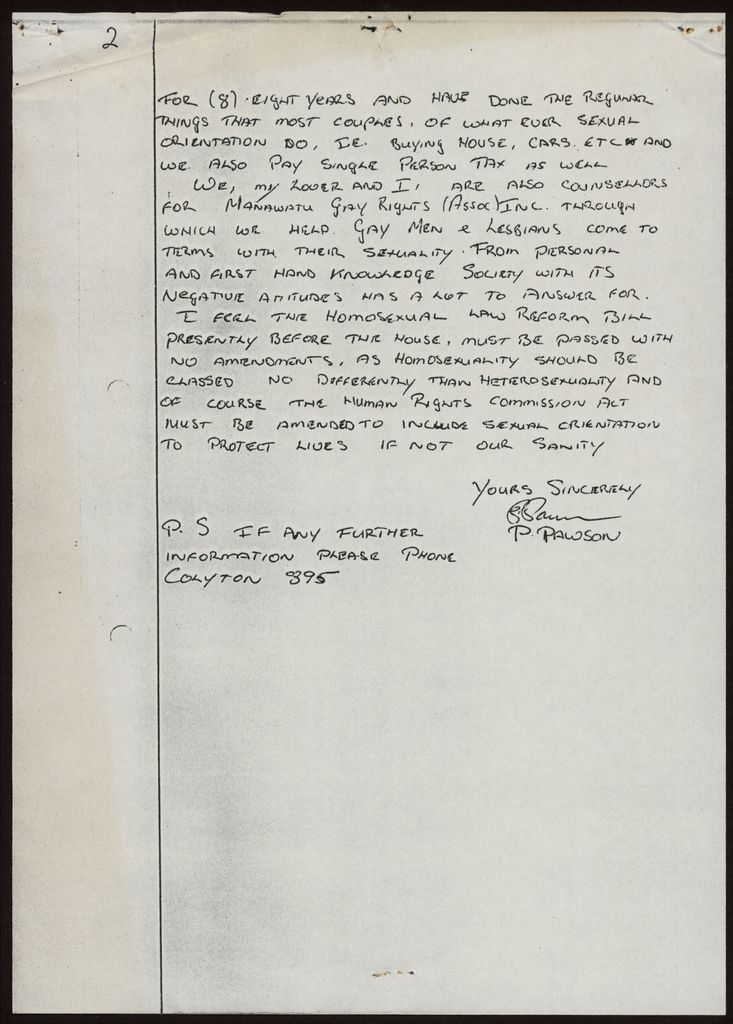 2
FOR (8) EIGHT YEARS AND HAVE DONE THE REGULAR
THINGS THAT MOST COUPLES, OF WHAT EVER SEXUAL
ORIENTATION DO, IE. BUYING HOUSE, CARS, ETC AND
WE ALSO PAY SINGLE PERSON TAX AS WELL
WE, MY LOVER AND I, ARE ALSO COUNSELLORS
FOR MANAWATU GAY RIGHTS (ASSOC) INC. THROUGH
WHICH WE HELP GAY MEN & LESBIANS COME TO
TERMS WITH THEIR SEXUALITY. FROM PERSONAL
AND FIRST HAND KNOWLEDGE SOCIETY WITH ITS
NEGATIVE ATTITUDES HAS A LOT TO ANSWER FOR.
I FEEL THE HOMOSEXUAL LAW REFORM BILL
PRESENTLY BEFORE THE HOUSE, MUST BE PASSED WITH
NO AMENDMENTS, AS HOMOSEXUALITY SHOULD BE
CLASSED NO DIFFERENTLY THAN HETEROSEXUALITY AND
OF COURSE THE HUMAN RIGHTS COMMISSION ACT
MUST BE AMENDED TO INCLUDE SEXUAL ORIENTATION
TO PROTECT LIVES IF NOT OUR SANITY
YOURS SINCERELY
P. PAWSON
P. S IF ANY FURTHER
INFORMATION PLEASE PHONE
COLYTON 895